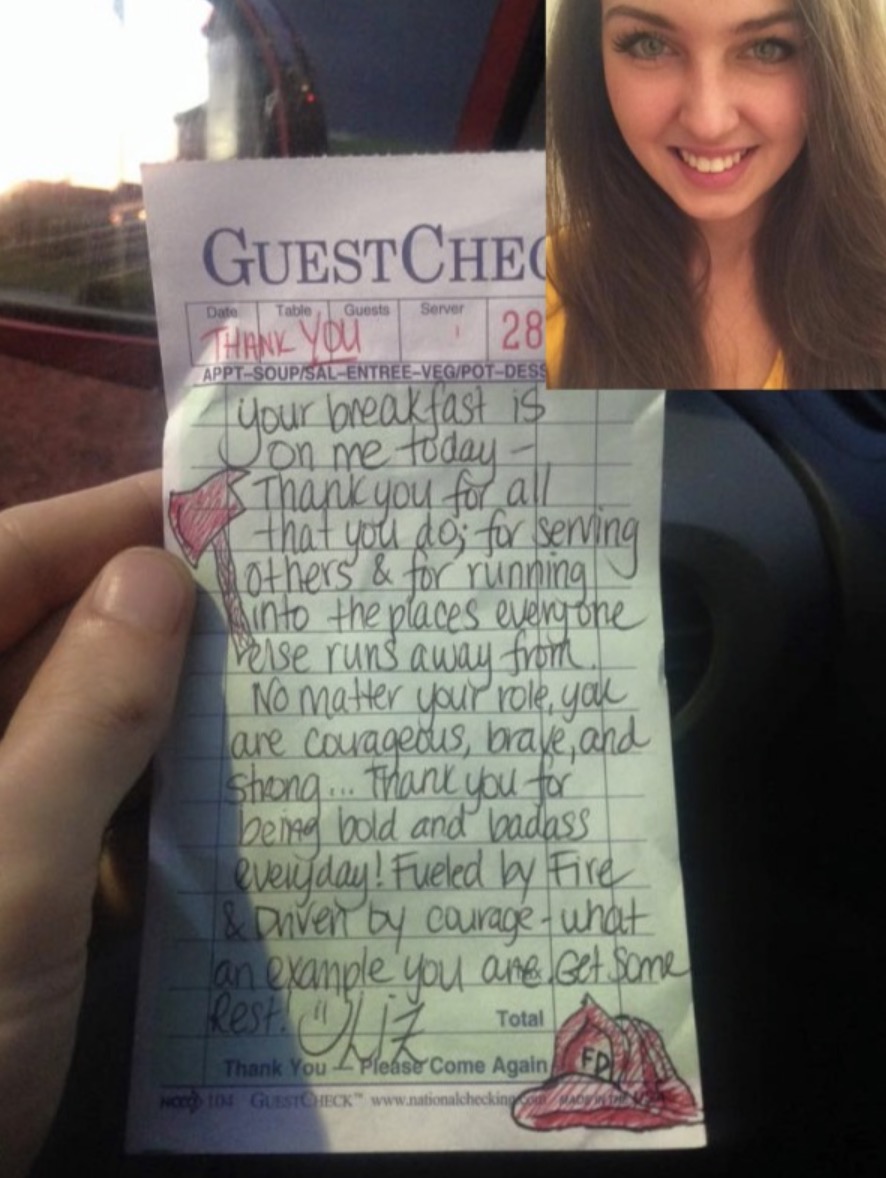 GUESTCHEC
Date Table Guests Server
THANK YOU 28
APPT–SOUP/SAL–ENTREE–VEG/POT–DESS
your breakfast is
on me today –
Thank you for all
that you do; for serving
others & for running
into the places everyone
else runs away from.
No matter your role, you
are courageous, brave, and
strong... Thank you for
being bold and badass
everyday! Fueled by Fire
& Driven by courage - what
an example you are. Get Some
Rest! Liz
Total
Thank You – Please Come Again
FD
104 GUESTCHECK™ www.nationalchecking.com MADE IN THE